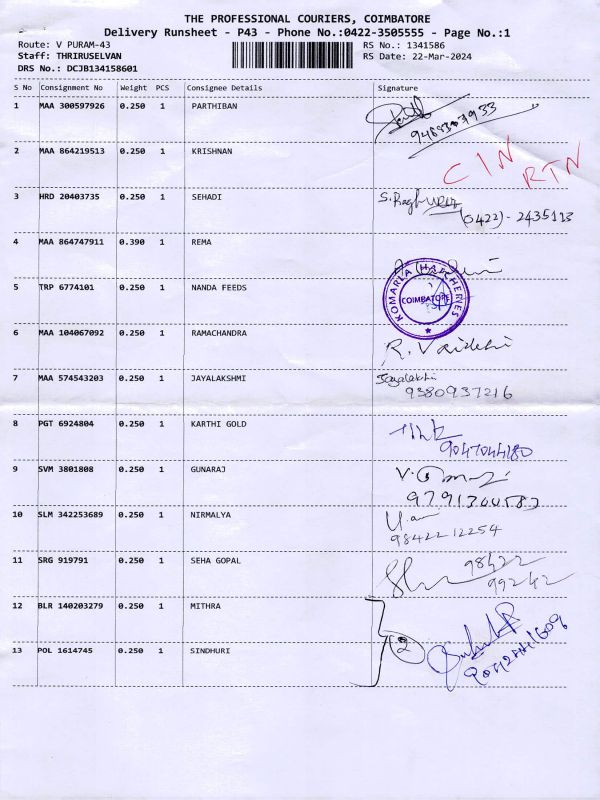 THE PROFESSIONAL COURIERS, COIMBATORE
Delivery Runsheet - P43 - Phone No.:0422-3505555 - Page No.:1
Route: V PURAM-43 RS No.: 1341586
Staff: THRIRUSELVAN RS Date: 22-Mar-2024
DRS No.: DCJB134158601
S No Consignment No Weight PCS Consignee Details Signature
1 MAA 300597926 0.250 1 PARTHIBAN
2 MAA 864219513 0.250 1 KRISHNAN CIN RTN
3 HRD 20403735 0.250 1 SEHADI S. Raghuram
(0422)-2435113
4 MAA 864747911 0.390 1 REMA
5 TRP 6774101 0.250 1 NANDA FEEDS KOMARLA HATCHERIES COIMBATORE
6 MAA 104067092 0.250 1 RAMACHANDRA R. Vaidehi
7 MAA 574543203 0.250 1 JAYALAKSHMI Jayalakshi
9380937216
8 PGT 6924804 0.250 1 KARTHI GOLD
9047044180
9 SVM 3801808 0.250 1 GUNARAJ
10 SLM 342253689 0.250 1 NIRMALYA
9842212254
11 SRG 919791 0.250 1 SEHA GOPAL 98422
99242
12 BLR 140203279 0.250 1 MITHRA
2
13 POL 1614745 0.250 1 SINDHURI